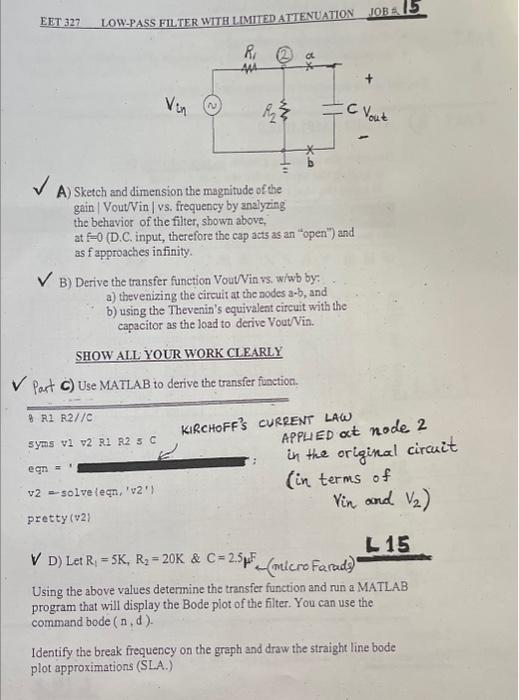 EET 327 LOW-PASS FILTER WITH LIMITED ATTENUATION JOB # 15
R1 2 a
+
Vin ~ R2 C Vout
-
b
✓ A) Sketch and dimension the magnitude of the
gain | Vout/Vin | vs. frequency by analyzing
the behavior of the filter, shown above,
at f=0 (D.C. input, therefore the cap acts as an "open") and
as f approaches infinity.
✓ B) Derive the transfer function Vout/Vin vs. w/wb by:
a) thevenizing the circuit at the nodes a-b, and
b) using the Thevenin's equivalent circuit with the
capacitor as the load to derive Vout/Vin.
SHOW ALL YOUR WORK CLEARLY
✓ Part C) Use MATLAB to derive the transfer function.
% R1 R2//C
syms v1 v2 R1 R2 s C
KIRCHOFF'S CURRENT LAW
APPLIED at node 2
in the original circuit
(in terms of
Vin and V2)
eqn = ' ;
v2 = solve(eqn,'v2')
pretty(v2)
L15
✓ D) Let R1 = 5K, R2 = 20K & C = 2.5μF ← (micro Farads)
Using the above values determine the transfer function and run a MATLAB
program that will display the Bode plot of the filter. You can use the
command bode ( n , d ).
Identify the break frequency on the graph and draw the straight line bode
plot approximations (SLA.)